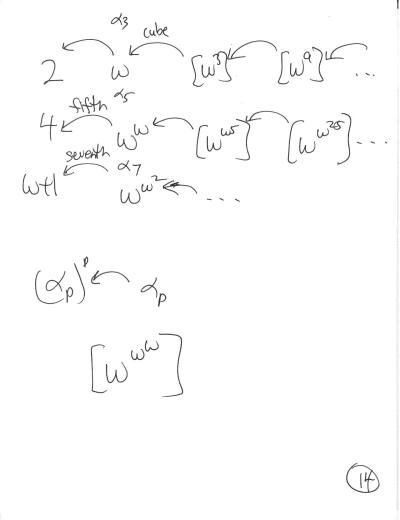 α₃ cube
2 ω [ω³] [ω⁹] ...
fifth α₅
4 ω^ω [ω^ω5] [ω^ω25] ...
seventh α₇
ω+1 ω^ω² ...
(αₚ)ᵖ αₚ
[ω^ω^ω]
14